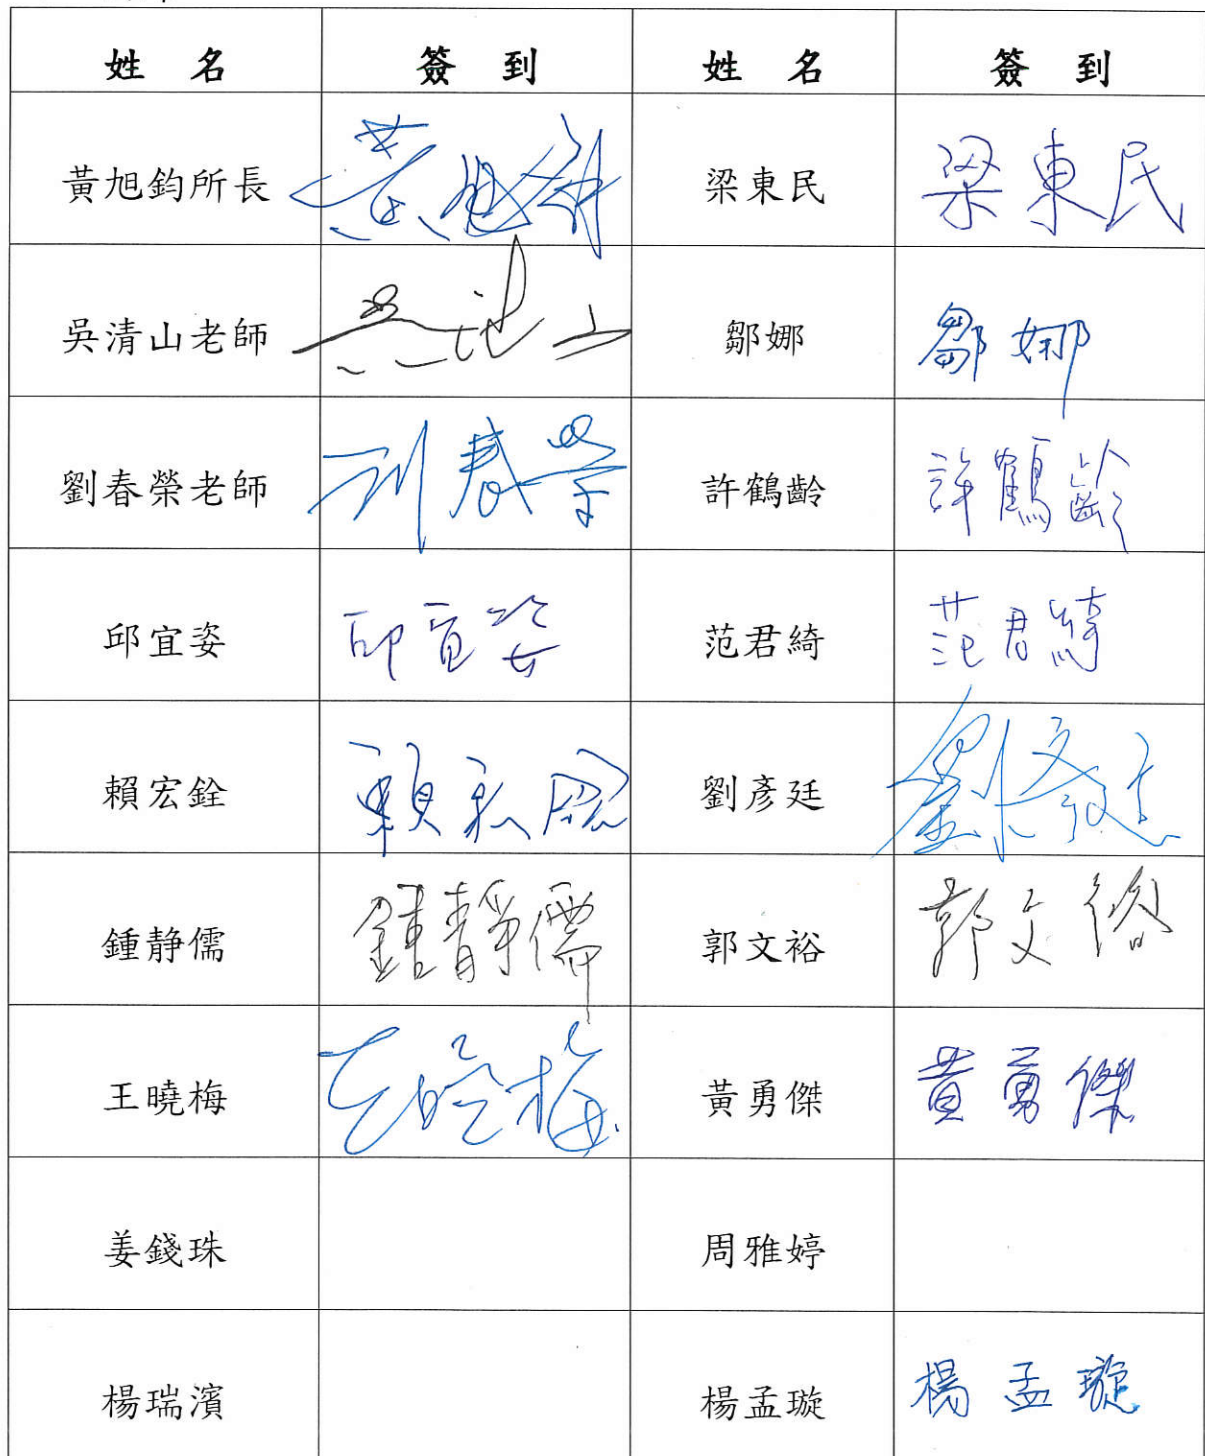 姓 名 簽 到 姓 名 簽 到
黃旭鈞所長 黃旭鈞 梁東民 梁東民
吳清山老師 吳清山 鄒娜 鄒娜
劉春榮老師 刘春荣 許鶴齡 許鶴齡
邱宜姿 邱宜姿 范君綺 范君綺
賴宏銓 賴 劉彥廷 劉彥廷
鍾静儒 鍾靜儒 郭文裕 郭文裕
王曉梅 王曉梅 黃勇傑 黃勇傑
姜錢珠 周雅婷
楊瑞濱 楊孟璇 楊孟璇